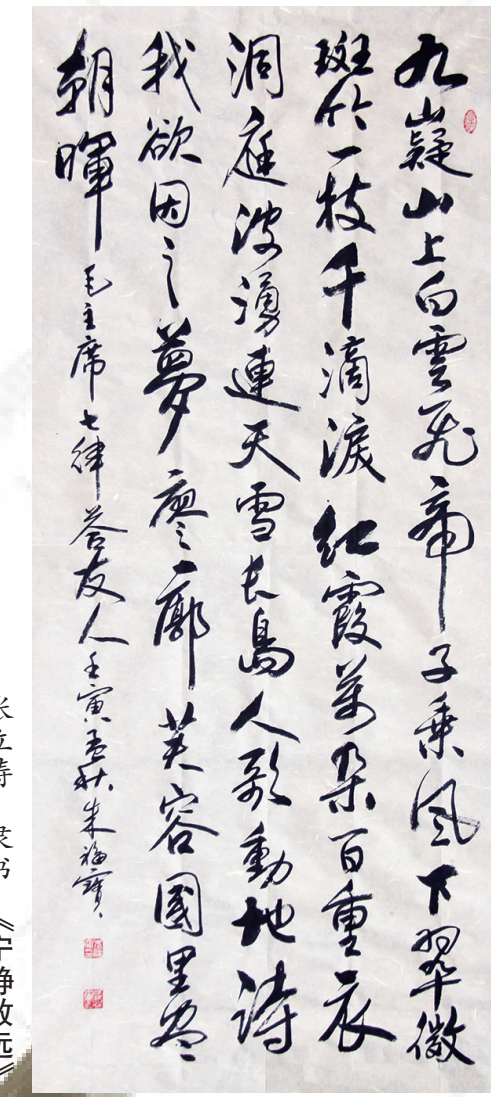 九嶷山上白雲飛帝子乘風下翠微
斑竹一枝千滴淚紅霞萬朵百重衣
洞庭波湧連天雪長島人歌動地詩
我欲因之夢廖廓芙容國里尽
朝暉 毛主席七律答友人壬寅孟秋朱福寶
隶书 《宁静致远》